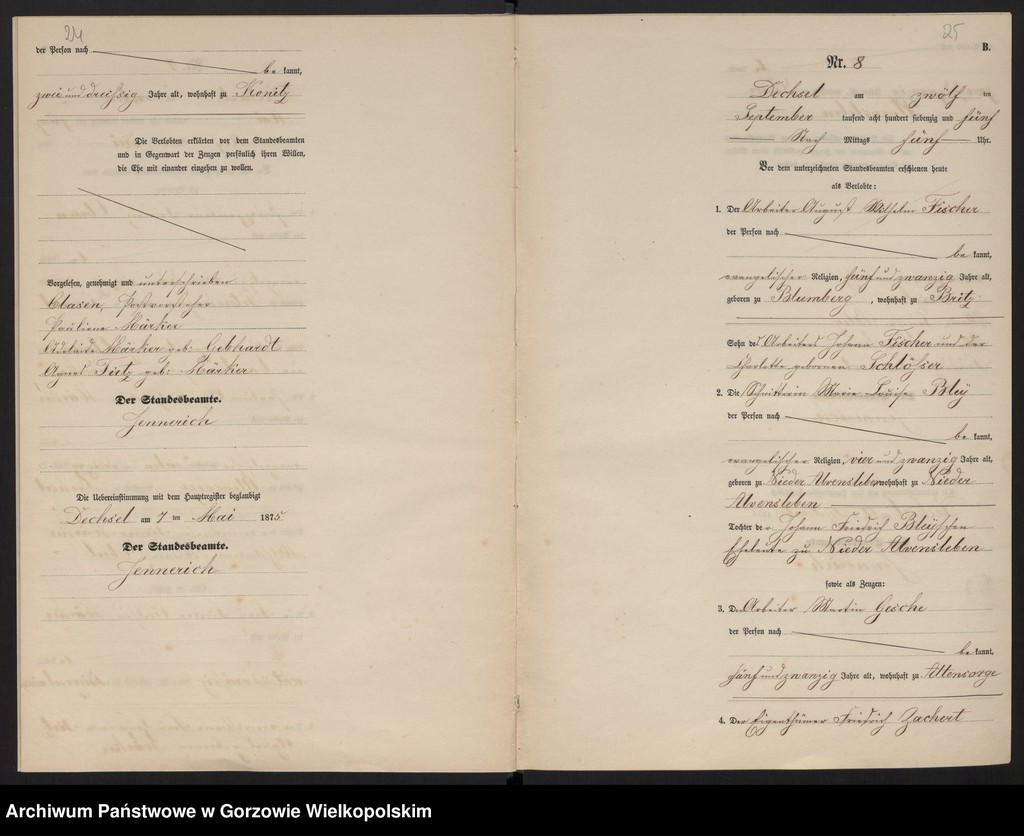 24
der Person nach
be kannt,
zwei und dreißig Jahre alt, wohnhaft zu Konitz
Die Verlobten erklärten vor dem Standesbeamten
und in Gegenwart der Zeugen persönlich ihren Willen,
die Ehe mit einander eingehen zu wollen.
Vorgelesen, genehmigt und unterschrieben
Clasen, Postvorsteher
Pauliene Märker
Adelaide Märker geb: Gebhardt
Agnes Tietz geb: Märker
Der Standesbeamte.
Jennerich
Die Uebereinstimmung mit dem Hauptregister beglaubigt
Dechsel am 7 ten Mai 1875
Der Standesbeamte.
Jennerich
25
B.
Nr. 8
Dechsel am zwölf ten
September tausend acht hundert siebenzig und fünf
Nach Mittags fünf Uhr.
Vor dem unterzeichneten Standesbeamten erschienen heute
als Verlobte:
1. Der Arbeiter August Wilhelm Fischer
der Person nach
be kannt,
evangelischer Religion, fünf und zwanzig Jahre alt,
geboren zu Blumberg, wohnhaft zu Britz
Sohn des Arbeiters Johann Fischer und der
Charlotte gebornen Schlösser
2. Die Schnitterin Marie Louise Bley
der Person nach
be kannt,
evangelischer Religion, vier und zwanzig Jahre alt,
geboren zu Nieder Alvensleben wohnhaft zu Nieder
Alvensleben
Tochter der Johann Friedrich Bley'schen
Eheleute zu Nieder Alvensleben
sowie als Zeugen:
3. Der Arbeiter Martin Gesche
der Person nach
be kannt,
fünf und zwanzig Jahre alt, wohnhaft zu Altensorge
4. Der Eigenthümer Friedrich Zachert
Archiwum Państwowe w Gorzowie Wielkopolskim